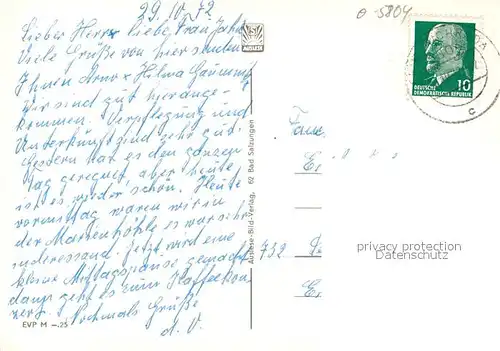 29.10.72
Lieber Herr, liebe Frau Jahn
Viele Grüße von hier senden
Ihnen Arno & Hilma
Wir sind gut hierange-
kommen. Verpflegung und
Unterkunft sind sehr gut.
Gestern hat es den ganzen
Tag geregnet, aber heute
ist es wieder schön. Heute
vormittag waren wir in
der Marienhöhle es war sehr
inderessand. Jetzt wird eine
kleine Mittagspause gemacht
dann geht es zum Kaffeekon-
zert. Nochmals Grüße
d. O.
EVP M –.25
AUSLESE
Auslese-Bild-Verlag, 62 Bad Salzungen
5804
DEUTSCHE
DEMOKRATISCHE REPUBLIK
10
c
Fam.
E.
privacy protection
Datenschutz